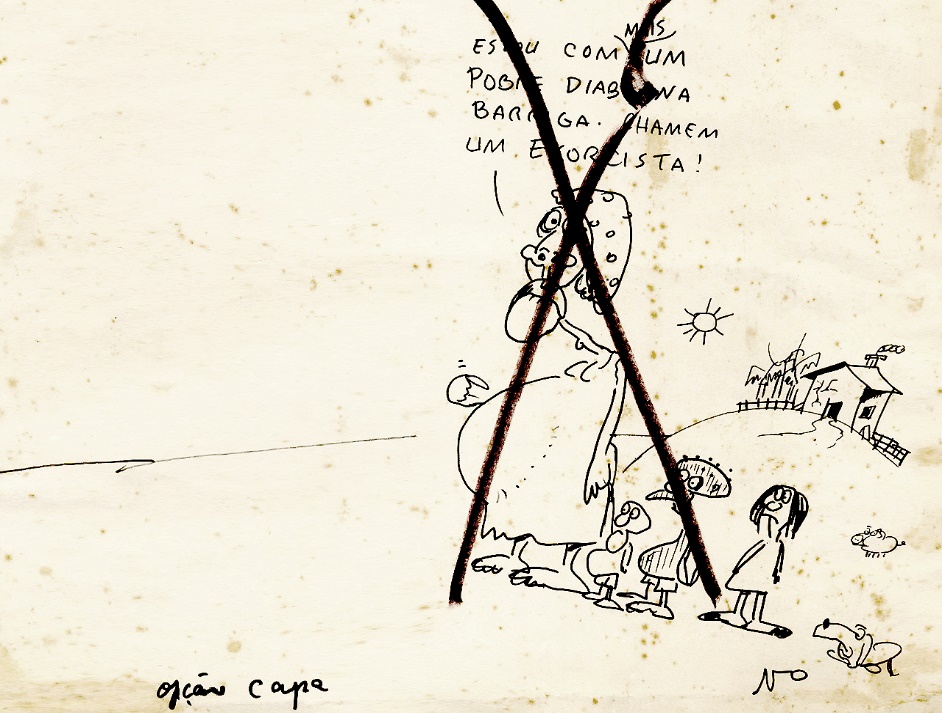 MAIS
ESTOU COM UM
POBRE DIABO NA
BARRIGA. CHAMEM
UM EXORCISTA!
NO
opção capa